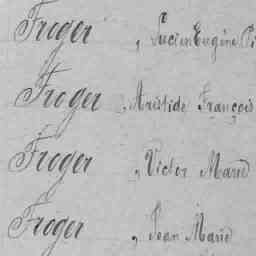 Froger , Lucien Eugène Pi
Froger , Aristide François
Froger , Victor Marie
Froger , Jean Marie